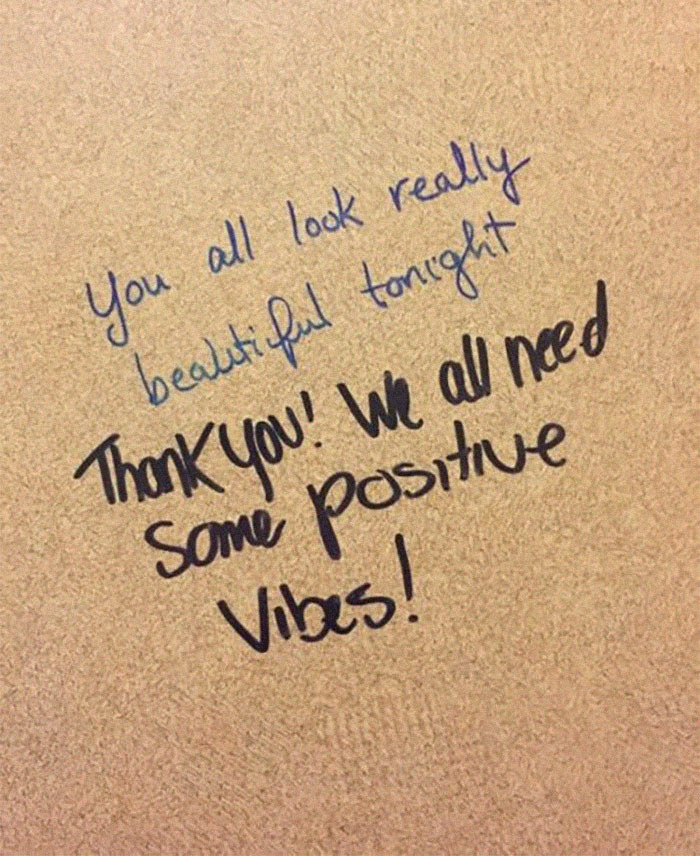 You all look really
beautiful tonight
Thank you! We all need
some positive
Vibes!